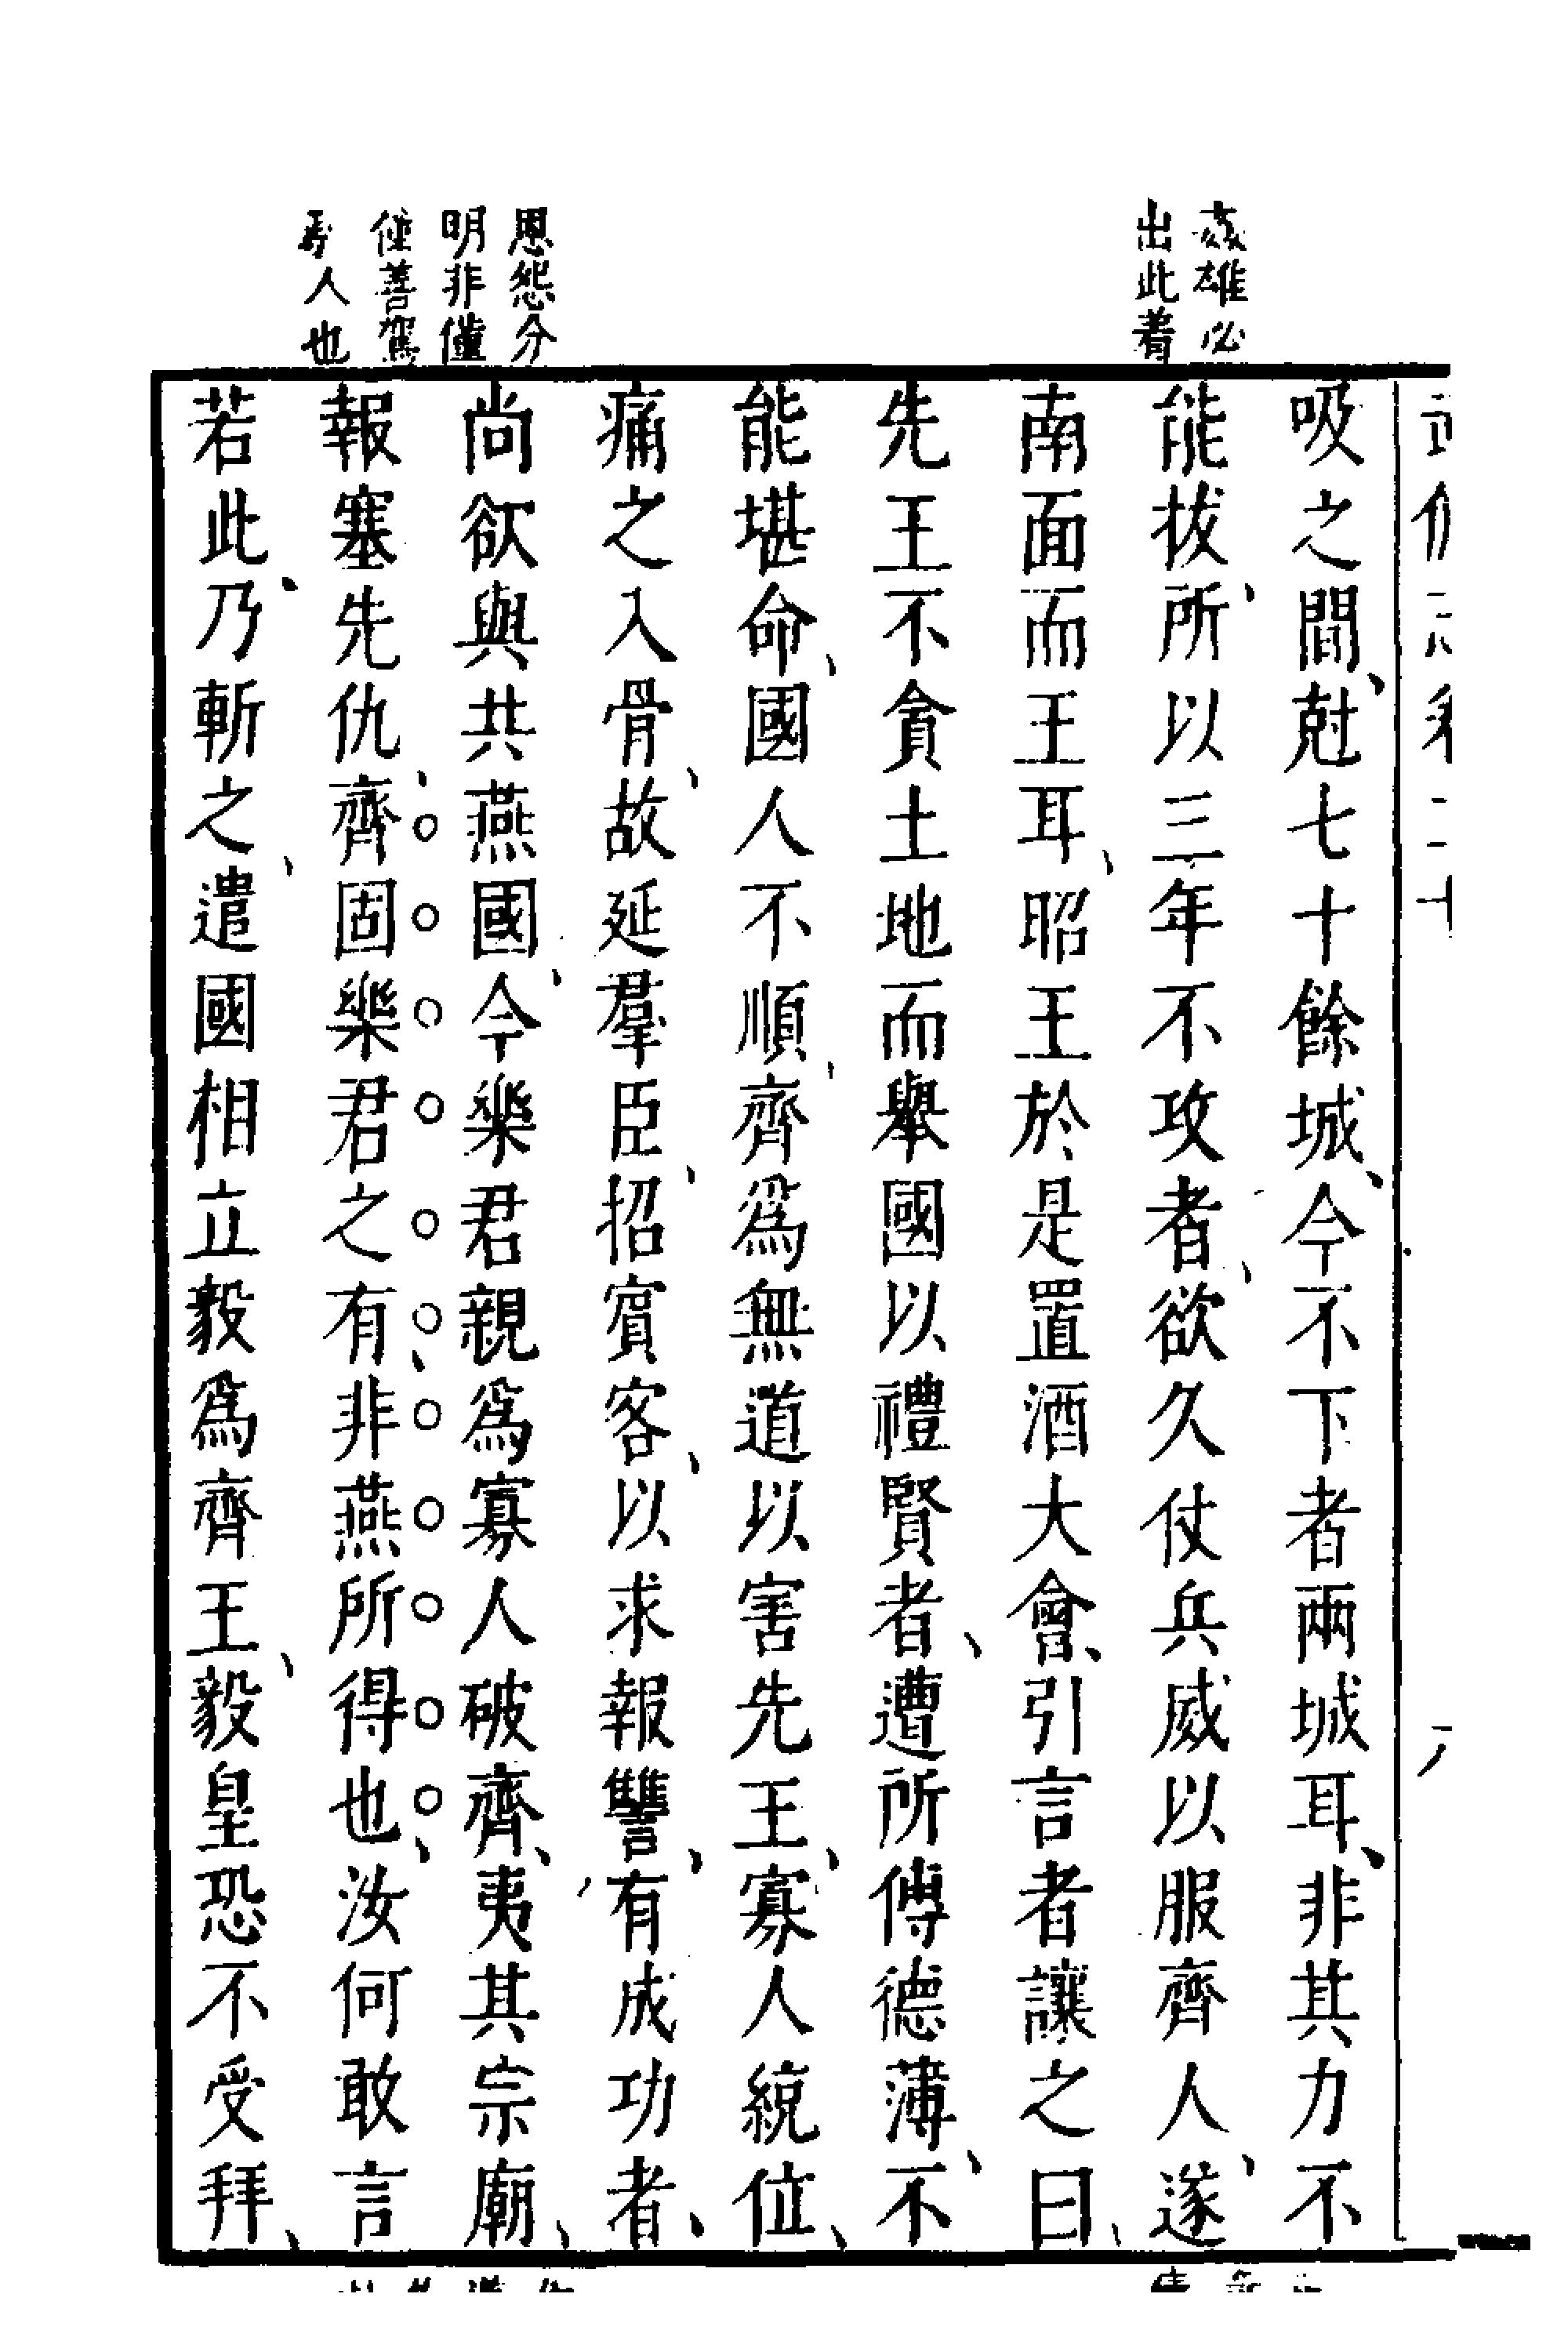 姦雄必
出此着
恩怨分
明非僅
僅善駕
馭人也
吸之間、尅七十餘城、今不下者兩城耳、非其力不
能拔、所以三年不攻者、欲久仗兵威以服齊人、遂
南面而王耳、昭王於是置酒大會、引言者讓之曰、
先王不貪土地而舉國以禮賢者、遭所傳德薄、不
能堪命、國人不順、齊爲無道以害先王、寡人統位、
痛之入骨、故延羣臣、招賓客、以求報讐、有成功者、
尚欲與共燕國、今樂君親爲寡人破齊、夷其宗廟、
報塞先仇、齊固樂君之有、非燕所得也、汝何敢言
若此、乃斬之、遣國相立毅爲齊王、毅皇恐不受拜、